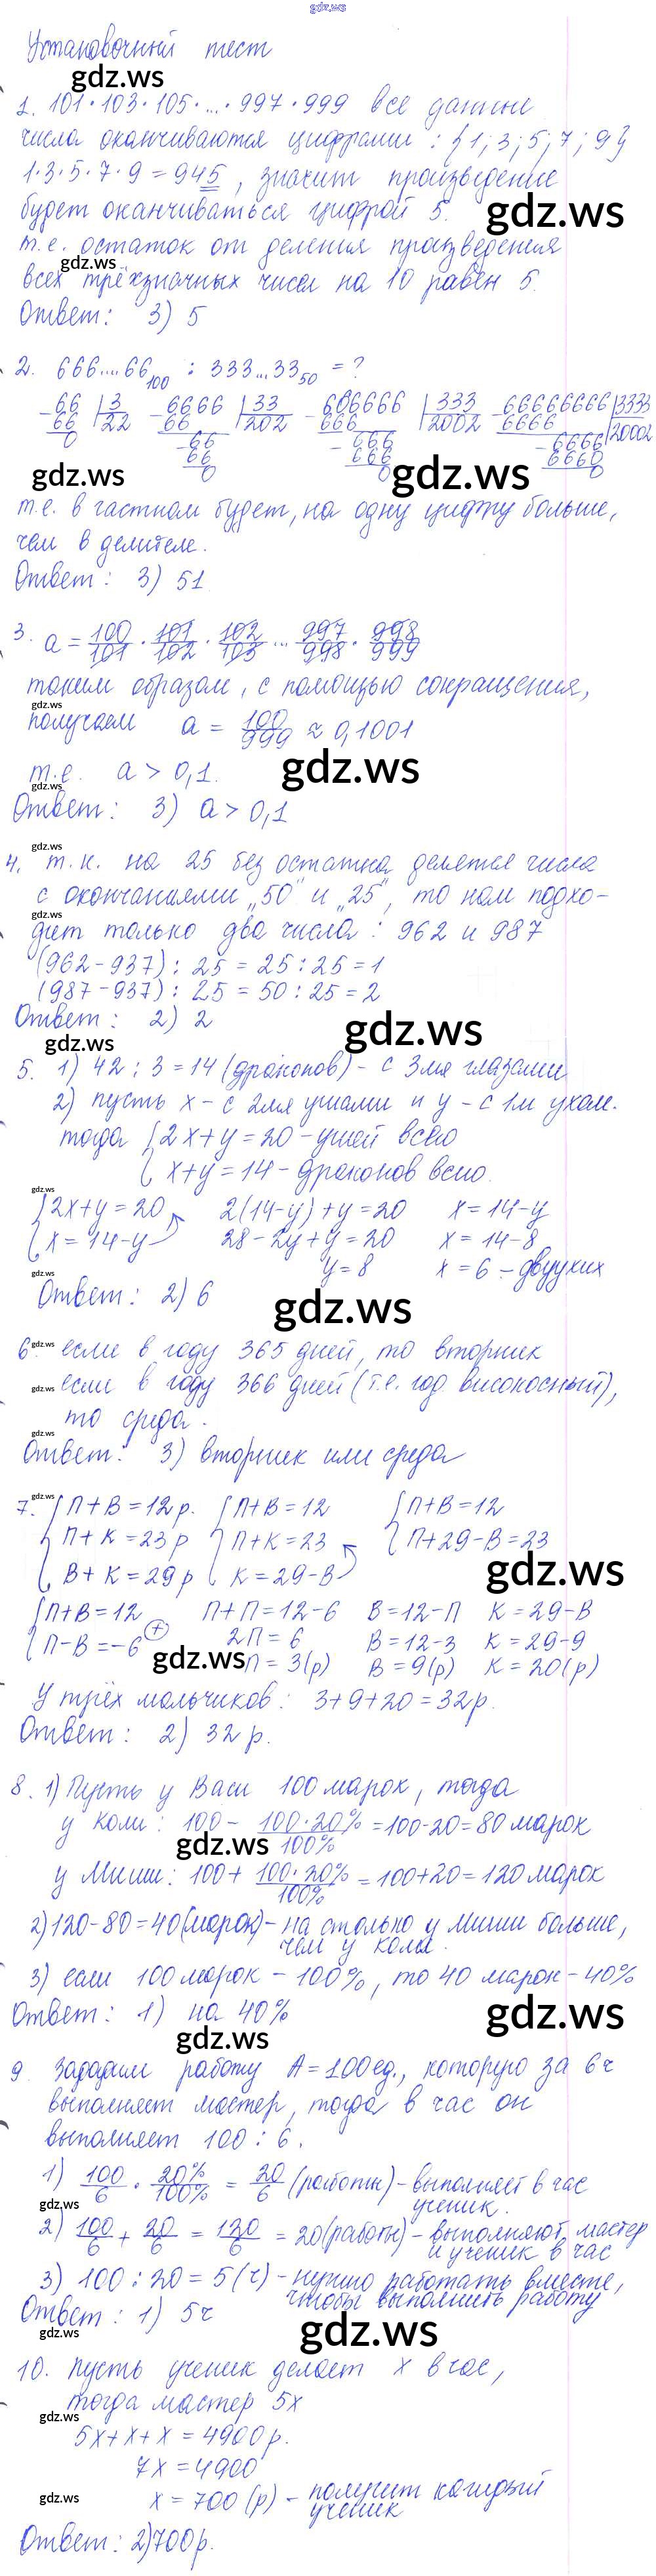 gdz.ws
Установочный тест
gdz.ws
1. 101·103·105·...·997·999 все данные
числа оканчиваются цифрами: {1; 3; 5; 7; 9}
1·3·5·7·9 = 945, значит произведение
будет оканчиваться цифрой 5.
gdz.ws
т.е. остаток от деления произведения
gdz.ws
всех трёхзначных чисел на 10 равен 5.
Ответ: 3) 5
2. 666...66₁₀₀ : 333...33₅₀ = ?
66 | 3 6666 | 33 666666 | 333 66666666 | 3333
66 22 66 202 666 2002 6666 20002
0 66 666 6666
66 666 6660
0 0 0
gdz.ws gdz.ws
т.е. в частном будет, на одну цифру больше,
чем в делителе.
Ответ: 3) 51
3. a = 100/101 · 101/102 · 102/103 ... 997/998 · 998/999
таким образом, с помощью сокращения,
gdz.ws
получаем a = 100/999 ≈ 0,1001
gdz.ws
т.е. a > 0,1.
gdz.ws
Ответ: 3) a > 0,1
gdz.ws
4. т.к. на 25 без остатка делятся числа
с окончаниями „50" и „25", то нам подхо-
gdz.ws
дит только два числа: 962 и 987
(962-937) : 25 = 25 : 25 = 1
(987-937) : 25 = 50 : 25 = 2
Ответ: 2) 2
gdz.ws
gdz.ws
5. 1) 42 : 3 = 14 (драконов) - с 3мя глазами
2) пусть x - с 2мя ушами и y - с 1м ухом.
тогда { 2x+y=20 - ушей всего
x+y=14 - драконов всего.
gdz.ws
{ 2x+y=20 2(14-y)+y=20 x=14-y
x=14-y 28-2y+y=20 x=14-8
gdz.ws
y=8 x=6 - двуухих
Ответ: 2) 6
gdz.ws
6. если в году 365 дней, то вторник
gdz.ws
если в году 366 дней (т.е. год високосный),
gdz.ws
то среда.
gdz.ws
Ответ: 3) вторник или среда
gdz.ws
7. { П+В=12р. { П+В=12 { П+В=12
П+К=23р П+К=23 П+29-В=23
В+К=29р К=29-В
gdz.ws
{ П+В=12 П+П=12-6 В=12-П К=29-В
П-В=-6 (+) 2П=6 В=12-3 К=29-9
gdz.ws
П=3(р) В=9(р) К=20(р)
У трёх мальчиков: 3+9+20=32р.
Ответ: 2) 32р.
8. 1) Пусть у Васи 100 марок, тогда
у Коли: 100 - 100·20%/100% = 100-20=80 марок
gdz.ws
у Миши: 100 + 100·20%/100% = 100+20=120 марок
2) 120-80=40(марок) - на столько у Миши больше,
чем у Коли.
3) если 100 марок - 100%, то 40 марок - 40%
Ответ: 1) на 40%
gdz.ws
gdz.ws
9. Зададим работу А=100ед., которую за 6ч
выполняет мастер, тогда в час он
выполняет 100 : 6.
1) 100/6 · 20%/100% = 20/6 (работы) - выполняет в час
gdz.ws
ученик.
2) 100/6 + 20/6 = 120/6 = 20(работы) - выполняют мастер
gdz.ws
и ученик в час
3) 100 : 20 = 5(ч) - нужно работать вместе,
чтобы выполнить работу
Ответ: 1) 5ч
gdz.ws
gdz.ws
10. Пусть ученик делает x в час,
тогда мастер 5x
gdz.ws
5x+x+x=4900р.
7x=4900
gdz.ws
x=700(р) - получит каждый
ученик
Ответ: 2) 700р.